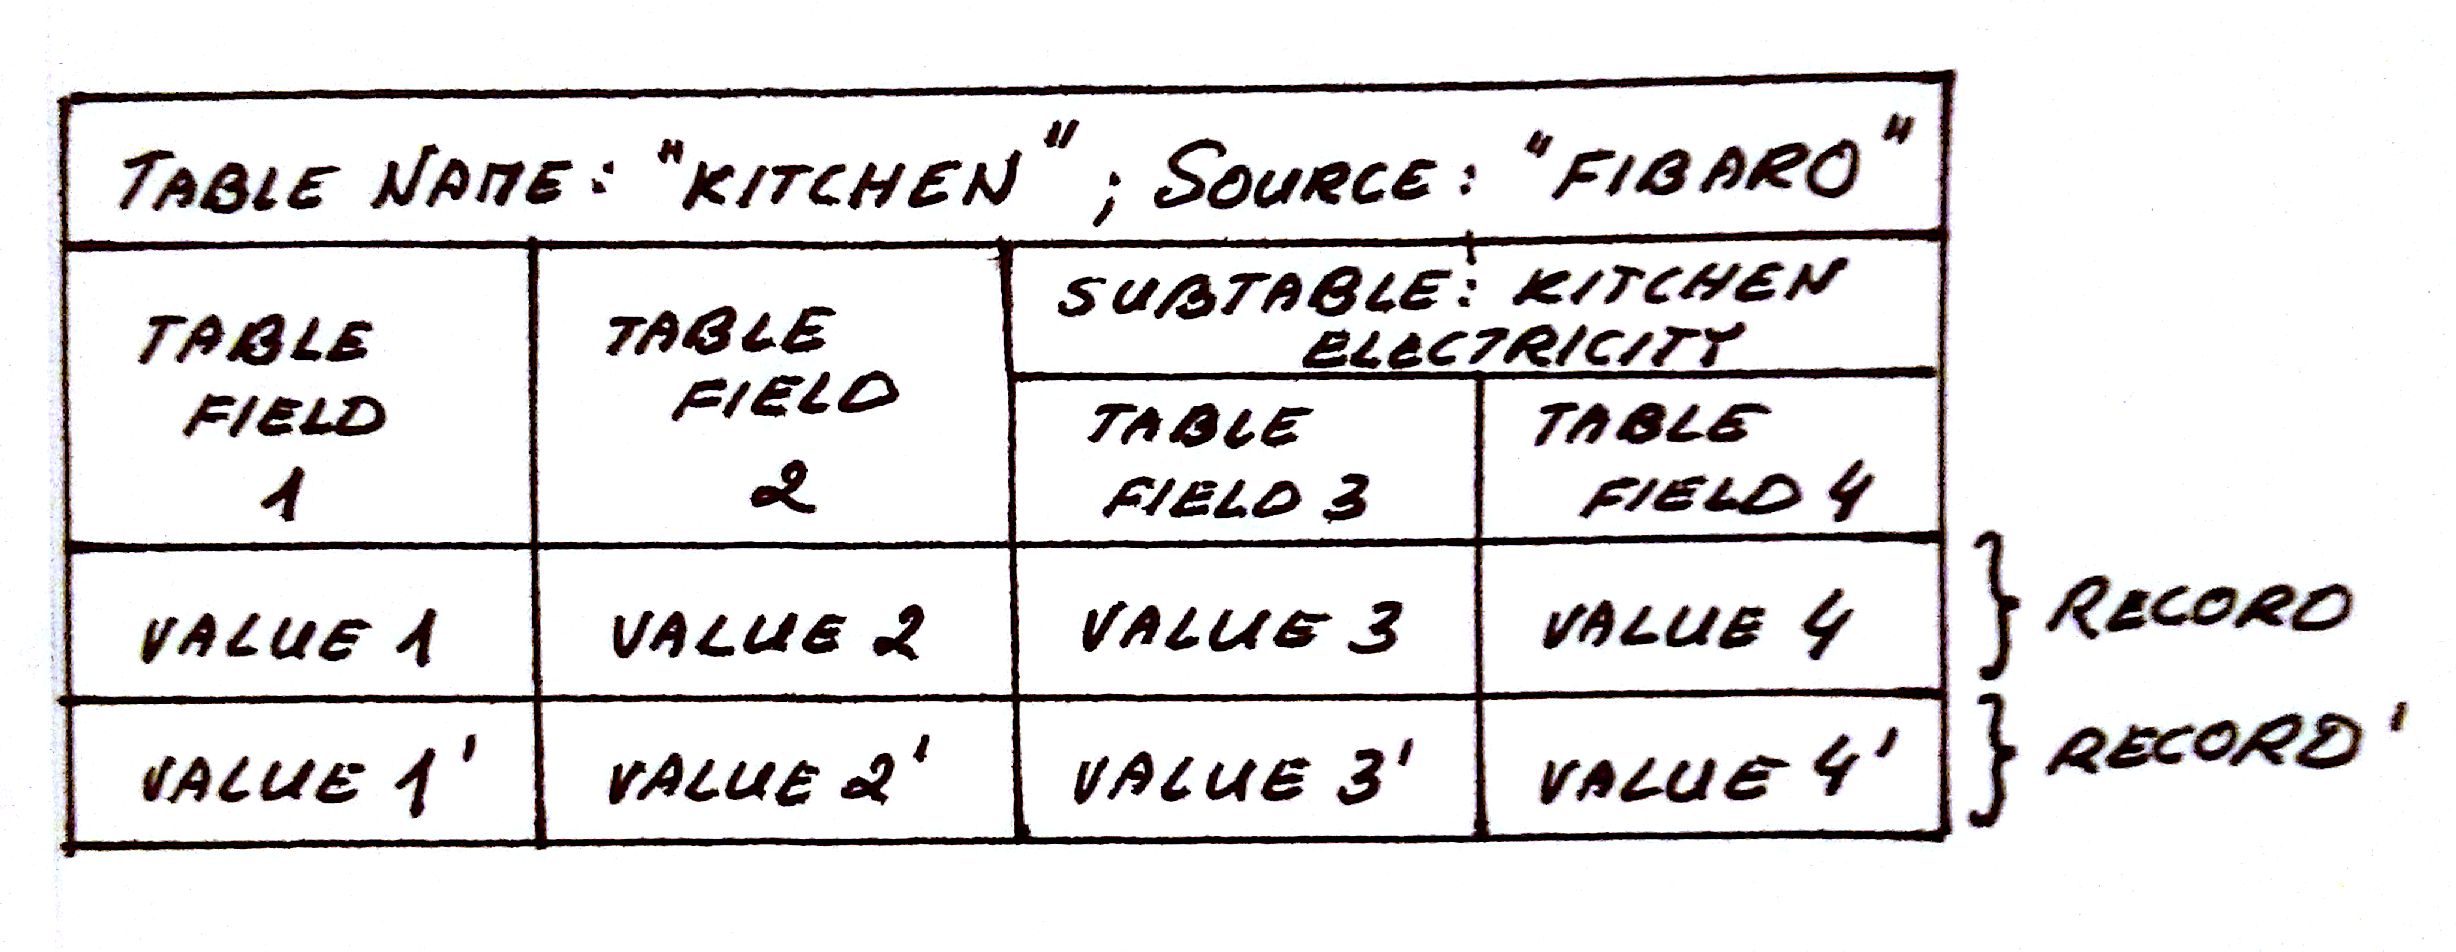 TABLE NAME: "KITCHEN"; SOURCE: "FIBARO"
TABLE
FIELD
1
TABLE
FIELD
2
SUBTABLE: KITCHEN
ELECTRICITY
TABLE
FIELD 3
TABLE
FIELD 4
VALUE 1 VALUE 2 VALUE 3 VALUE 4 } RECORD
VALUE 1' VALUE 2' VALUE 3' VALUE 4' } RECORD'